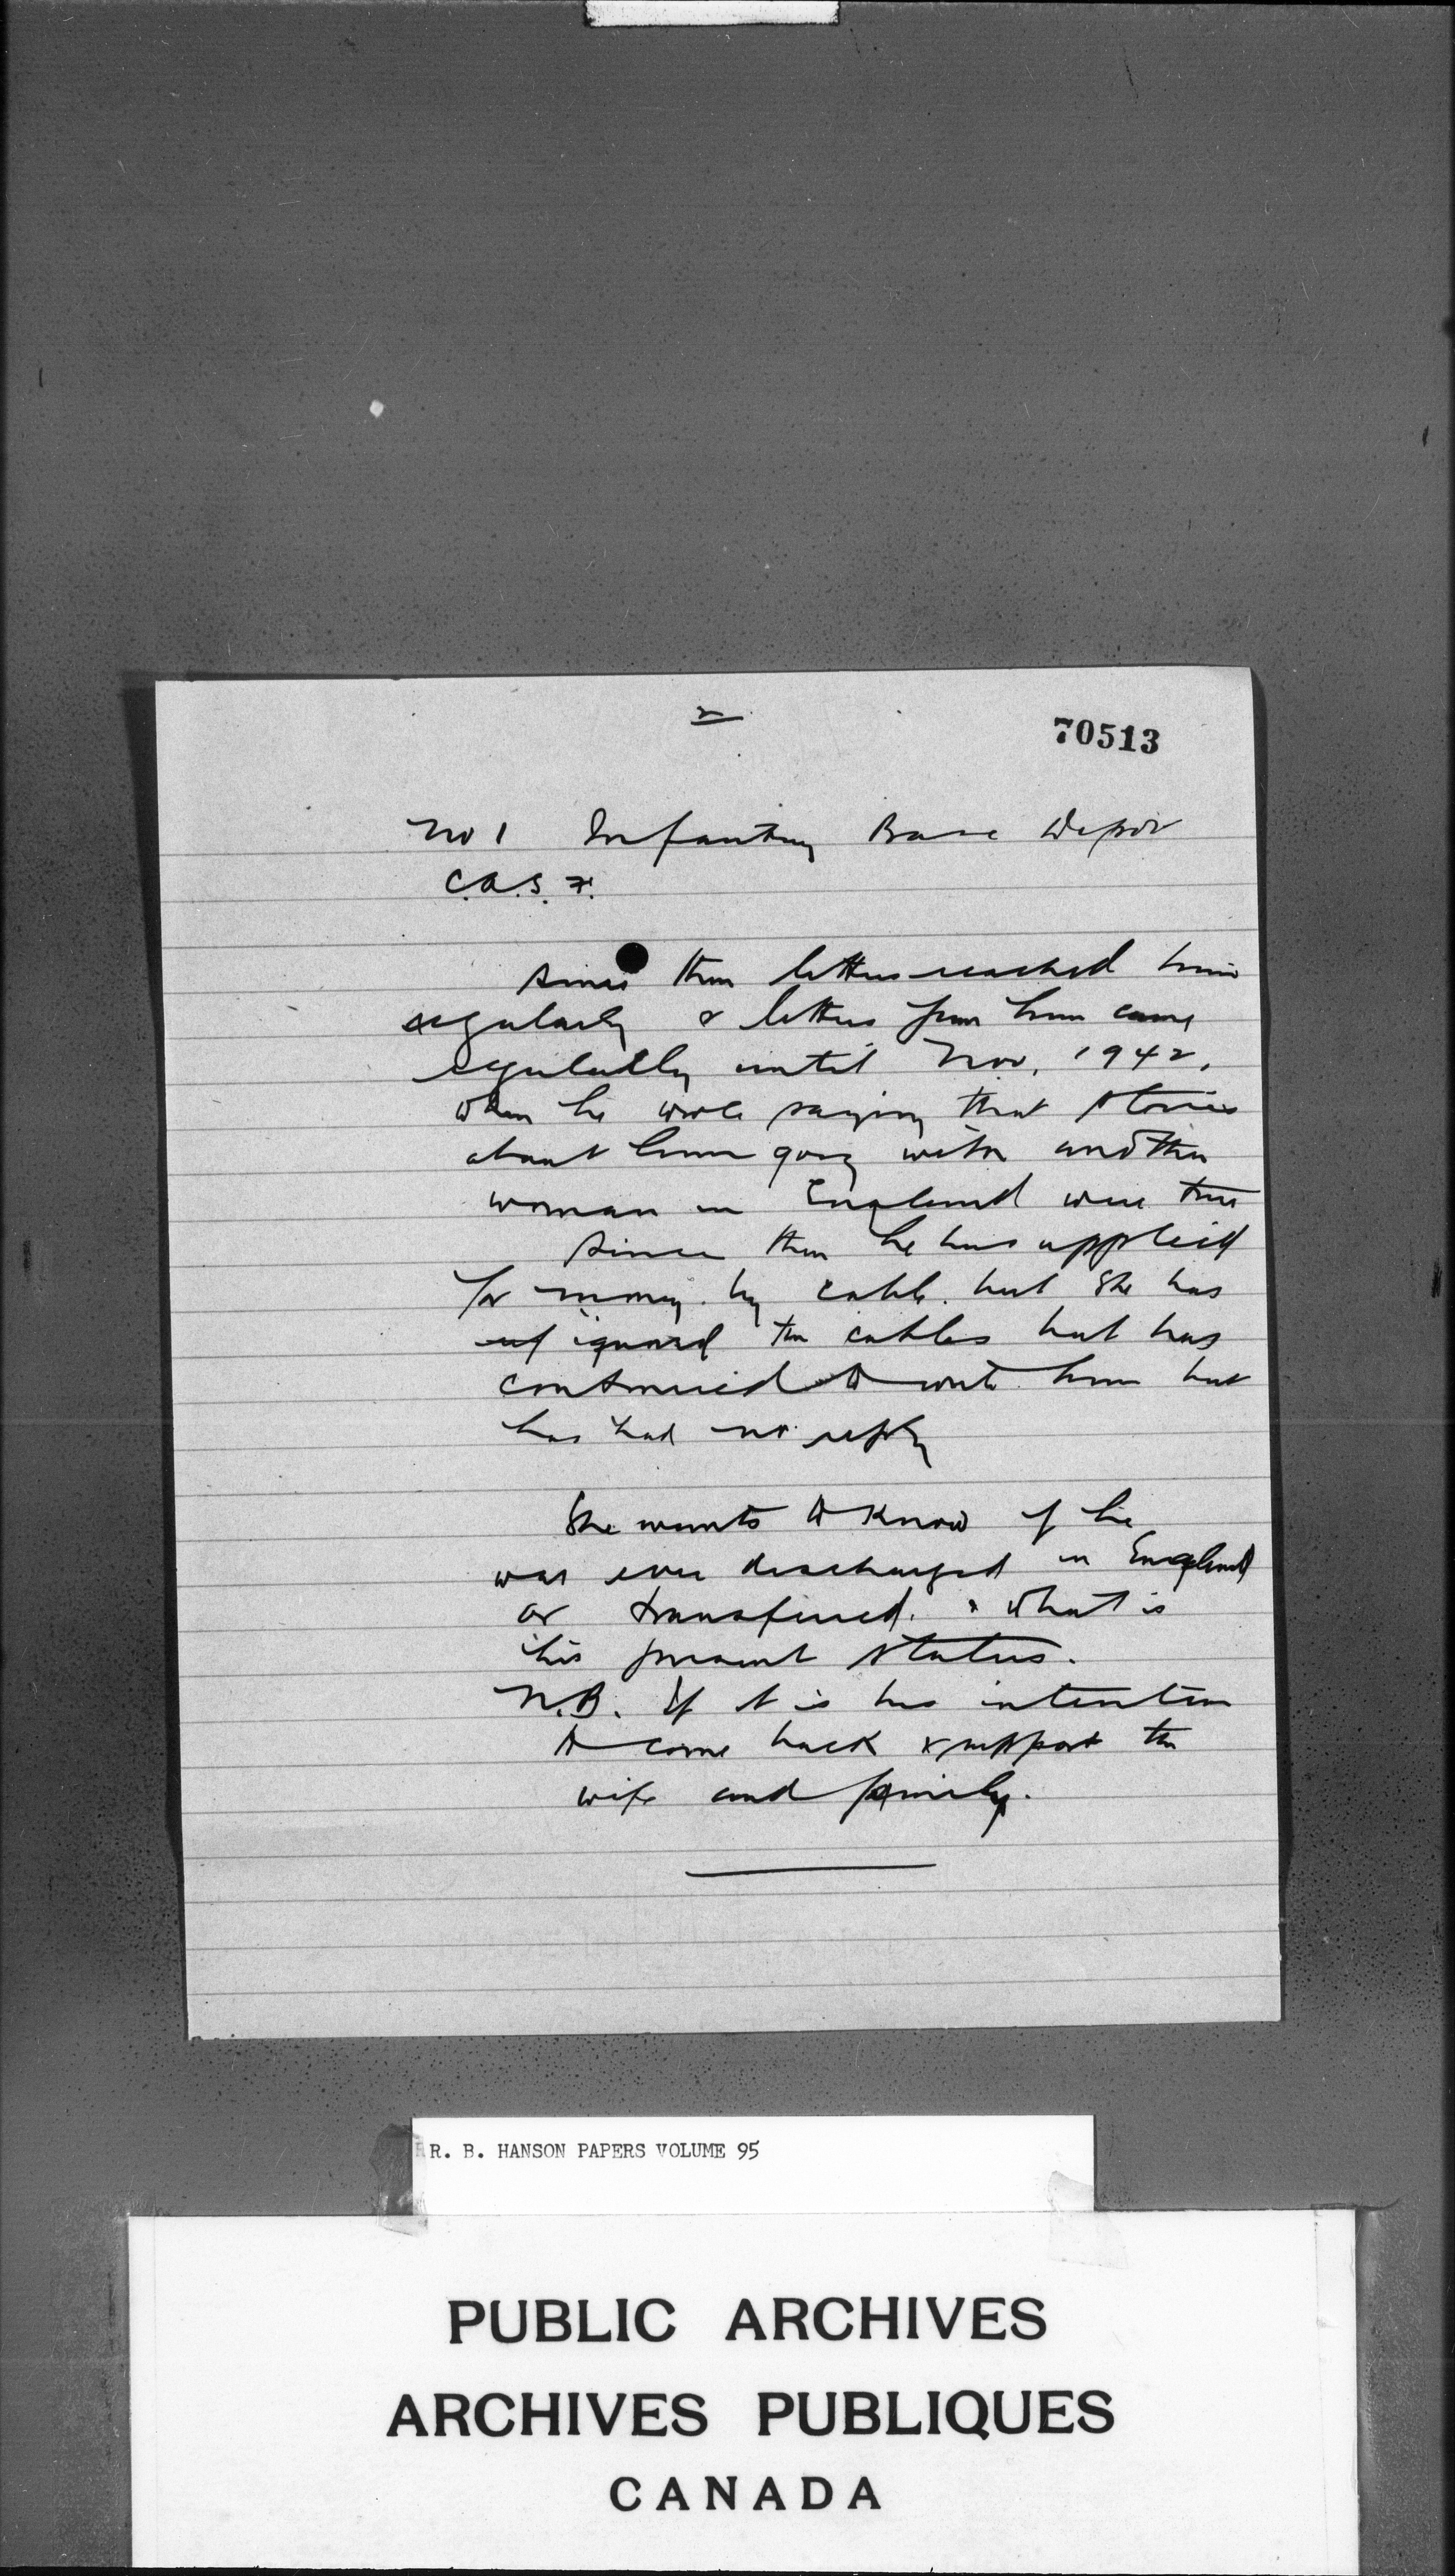 2
70513
No 1 Infantry Base Depot
C.A.S.F.
Since then letters reached him
regularly & letters from him came
regularly until Nov. 1942,
when he wrote saying that stories
about him going with another
woman in England were true
Since then he has applied
for money by cable but she has
ignored the cables but has
continued to write him but
has had no reply
She wants to know if he
was ever discharged in England
or transferred. & what is
his present status.
N.B. If it is his intention
to come back & support the
wife and family.
R. B. HANSON PAPERS VOLUME 95
PUBLIC ARCHIVES
ARCHIVES PUBLIQUES
CANADA